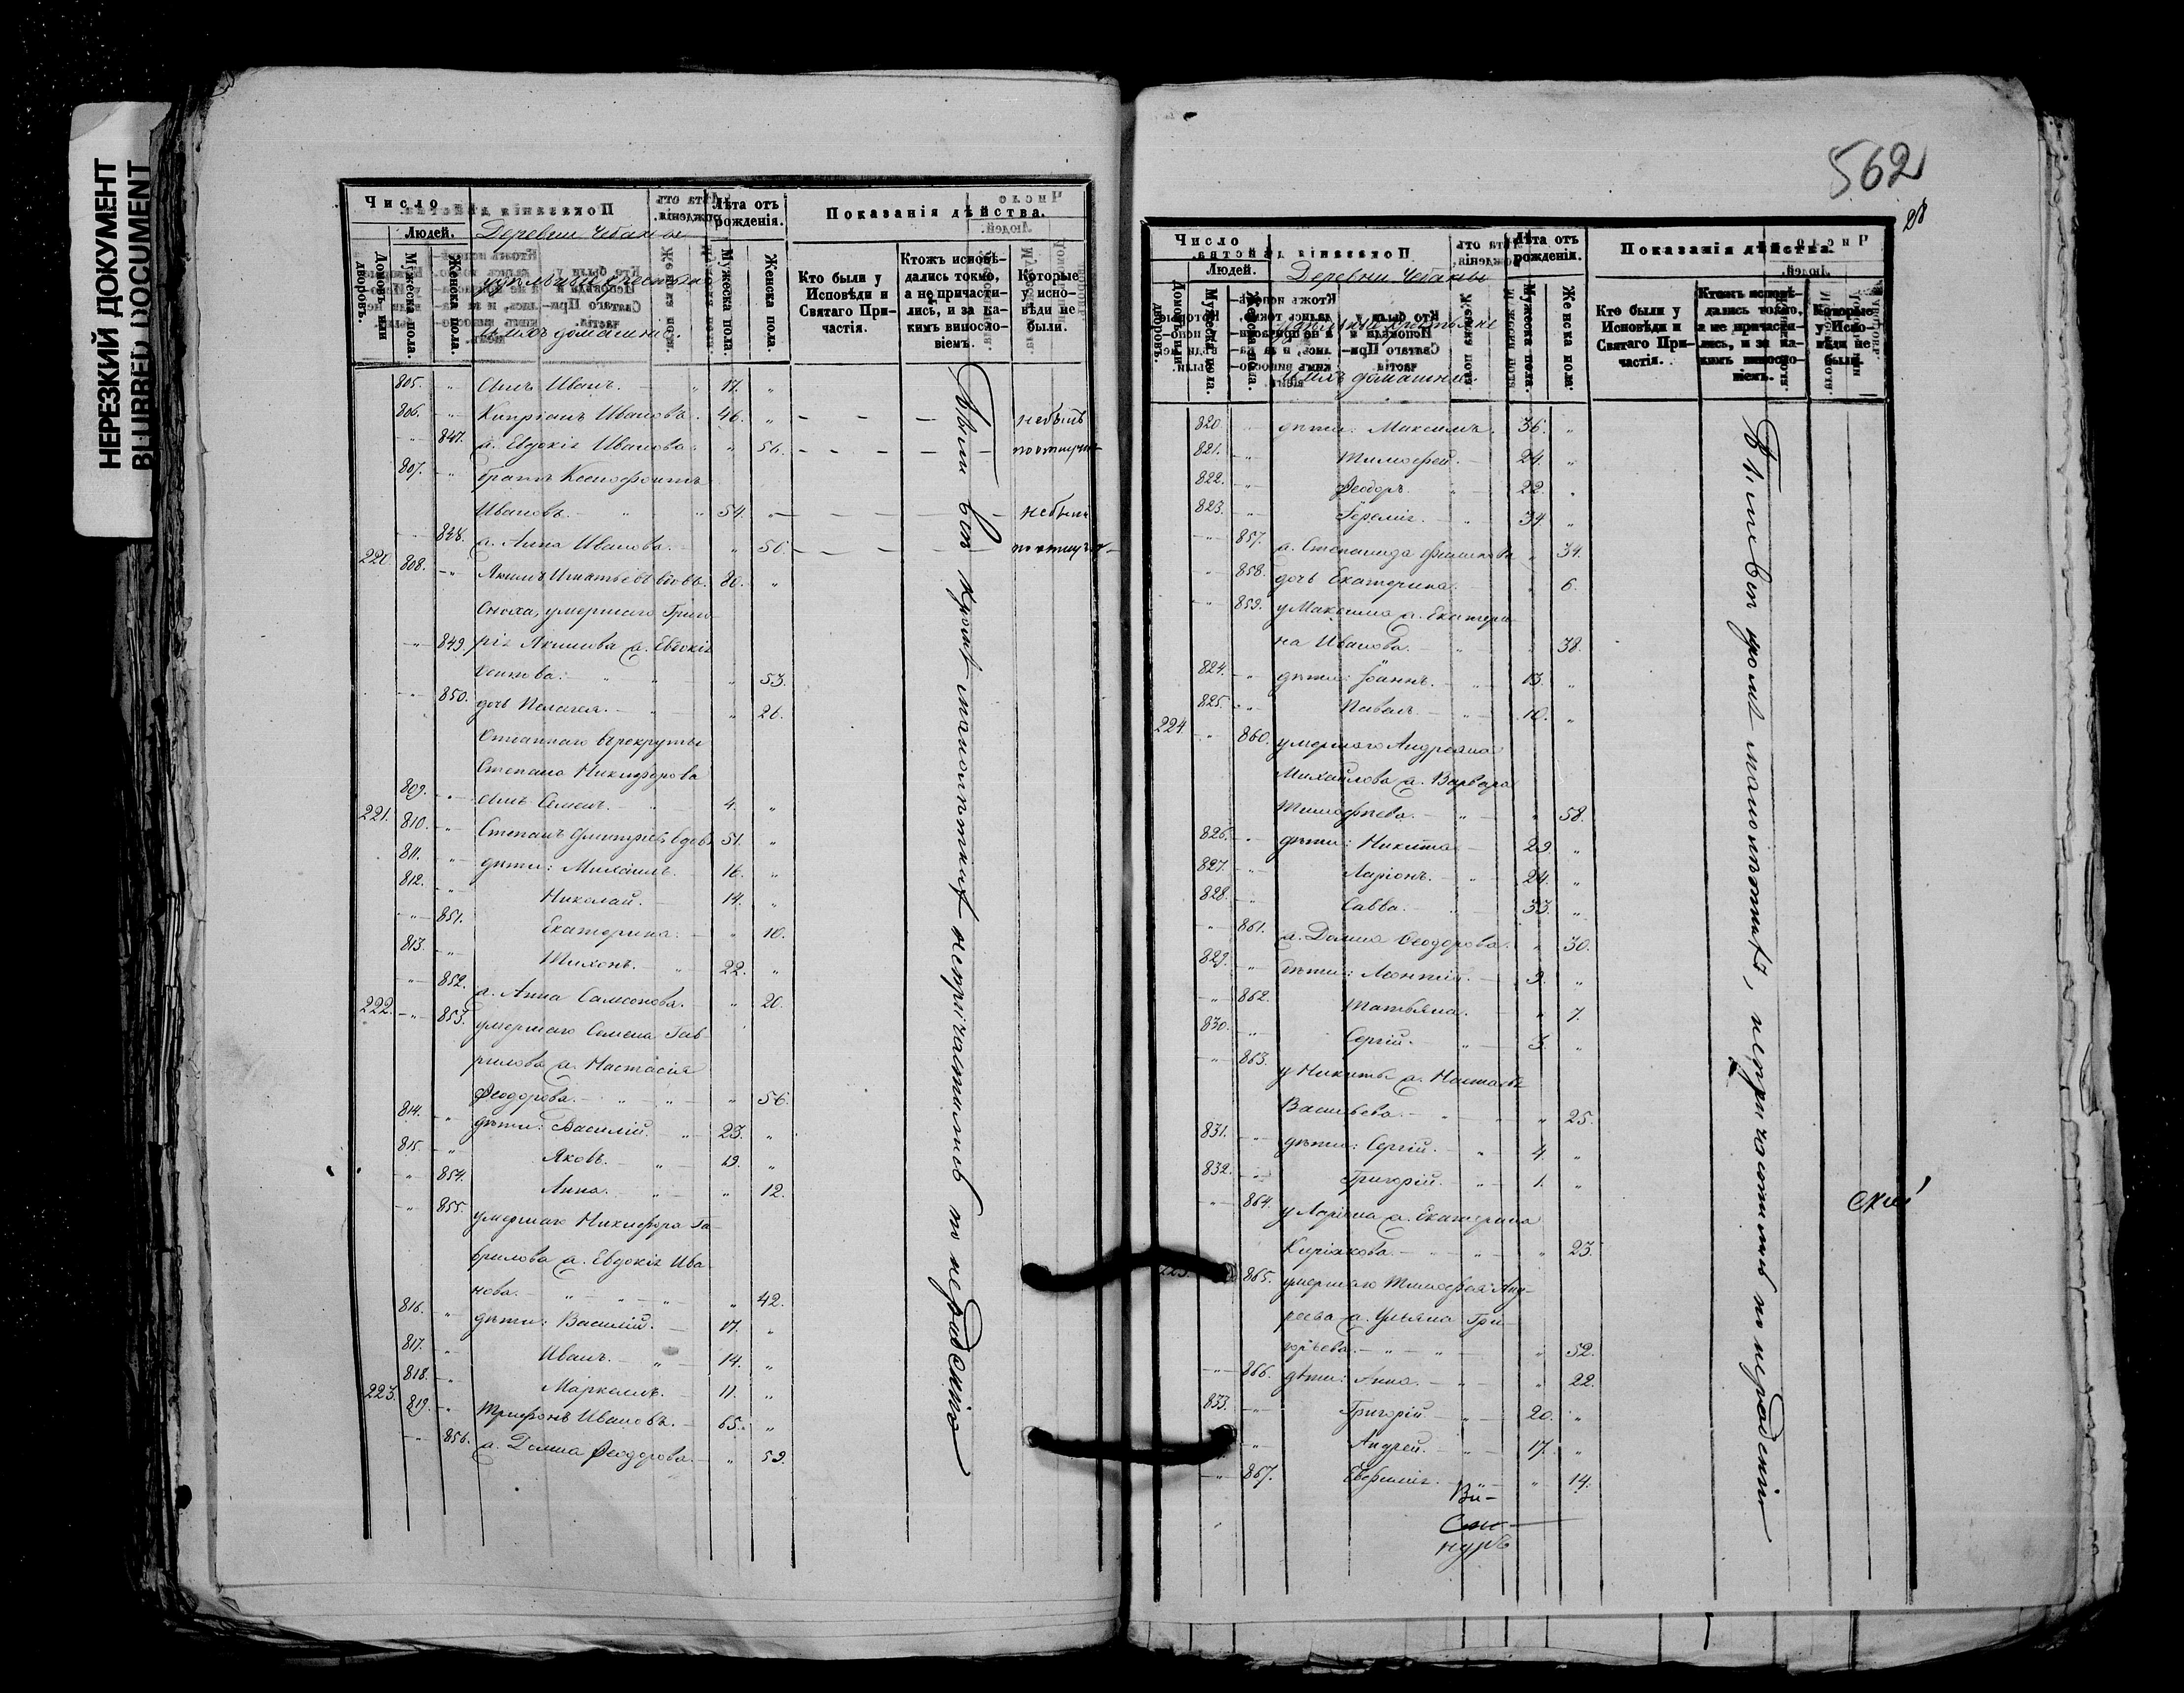 НЕРЕЗКИЙ ДОКУМЕНТ
BLURRED DOCUMENT
Число
Людей.
Домовъ или дворовъ.
Мужеска пола.
Женска пола.
Деревни Чебаков
удѣльные крестьяне
и ихъ домашніе.
Лѣта отъ рожденія.
Мужеска пола.
Женска пола.
Показанія дѣйства.
Кто были у Исповѣди и Святаго Причастія.
Ктожъ исповѣдались токмо, а не причастились, и за какимъ винословіемъ.
Которые у исповѣди не были.
805. сынъ Иванъ. 17.
806. Кипріанъ Ивановъ. 46. небытъ
847. ж. Евдокія Иванова. 56. по отлучкѣ
807. братъ Ксенофонтъ
Ивановъ. 54. небытъ
848. ж. Анна Иванова. 50. по отлучкѣ
220. 808. Якимъ Игнатьевъ вдовъ. 80.
Сноха, умершаго Григо-
849. рія Якимова ж. Евдокія
53.
850. дочь Пелагея. 26.
Отданнаго в рекруты
Степана Никифорова
809. сынъ Семенъ. 4.
221. 810. Степанъ Дмитріевъ вдовъ 51.
811. дѣти: Михаилъ. 16.
812. Николай. 14.
851. Екатерина. 10.
813. Тихонъ. 22.
852. ж. Анна Самсонова. 20.
222. 853. умершаго Семена Гав-
рилова ж. Настасія
Ѳеодорова. 56.
814. дѣти: Василій. 23.
815. Яковъ. 19.
854. Анна. 12.
855. умершаго Никифора Га-
врилова ж. Евдокія Ива-
нова. 42.
816. дѣти: Василій. 17.
817. Иванъ. 14.
818. Маркелъ. 11.
223. 819. Трифонъ Ивановъ. 65.
856. ж. Домна Ѳеодорова. 59.
Бѣли вси кромѣ малолѣтнихъ непричастились по нерадѣнію
562
28
Число
Людей.
Домовъ или дворовъ.
Мужеска пола.
Женска пола.
Деревни Чебаков
удѣльные крестьяне
и ихъ домашніе.
Лѣта отъ рожденія.
Мужеска пола.
Женска пола.
Показанія дѣйства.
Кто были у Исповѣди и Святаго Причастія.
Ктожъ исповѣдались токмо, а не причастились, и за какимъ винословіемъ.
Которые у Исповѣди не были.
820. дѣти: Максимъ. 36.
821. Тимофей. 24.
822. Ѳеодоръ. 22.
823. Іеремія. 34.
857. ж. Степанида Филипова 34.
858. дочь Екатерина. 6.
859. у Максима ж. Екатери-
на Иванова. 38.
824. дѣти: Іоаннъ. 13.
825. Павелъ. 10.
224 860. умершаго Андреяна
Михайлова ж. Варвара
Тимофѣева. 58.
826. дѣти: Никита 29.
827. Ларіонъ. 24.
828. Савва. 33.
861. ж. Домна Ѳеодорова. 30.
829. дѣти: Леонтій. 9.
862. Татьяна. 7.
830. Сергій. 3.
863. у Никиты ж. Настасья
Васильева. 25.
831. дѣти: Сергій. 4.
832. Григорій. 1.
864. у Ларіона ж. Екатерина
Киріакова. 23.
865. умершаго Тимофея Анд-
реева ж. Ульяна Гри-
горьева. 52.
866. дѣти: Анна. 22.
833. Григорій. 20.
Андрей. 17.
867. Евфимія. 14.
Были вси кромѣ малолѣтнихъ, непричастились по нерадѣнію